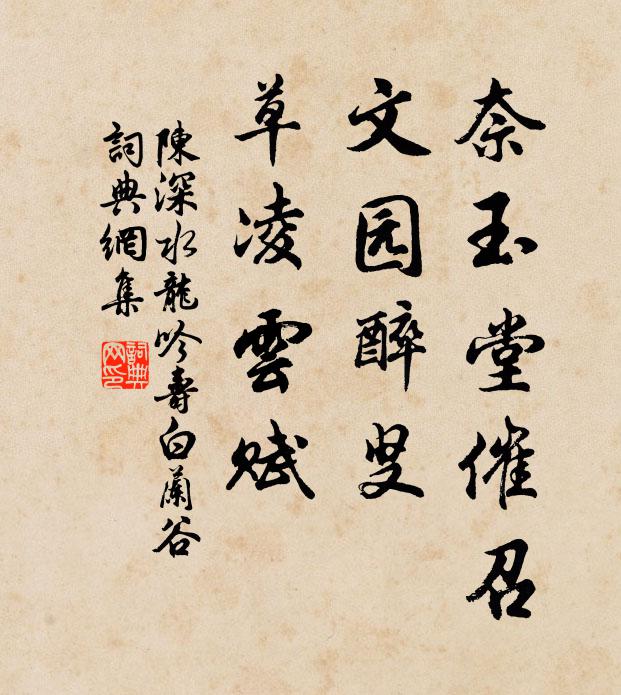 奈玉堂催召
文园醉叟
草凌雲赋
陳深水龍吟壽白蘭谷
詞典網集
詞典网印